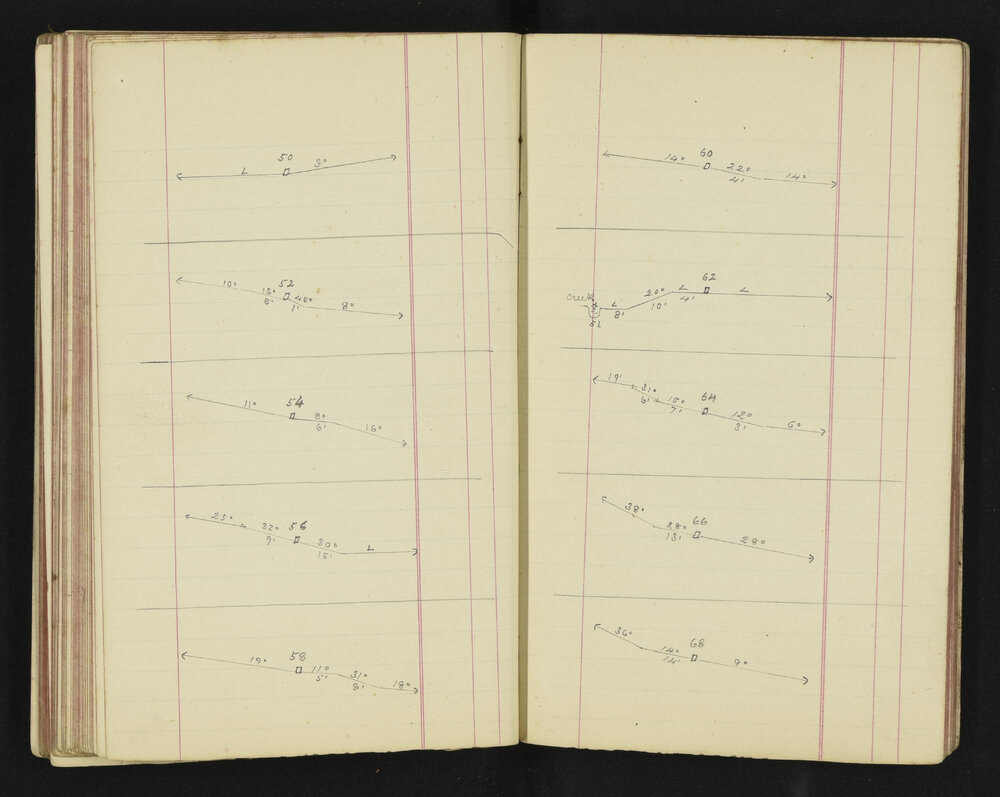 50
L 3°
52
10° 15° 45° 8°
5' 1'
54
11° 8° 16°
6'
56
25° 32° 30° L
9' 15'
58
19° 11° 31° 18°
5' 8'
60
14° 22° 14°
4'
62
creek L 20° L L
8' 10' 4'
64
19' 31° 15° 12° 6°
6' 7' 3'
66
38° 28° 28°
13'
68
36° 14° 9°
14'